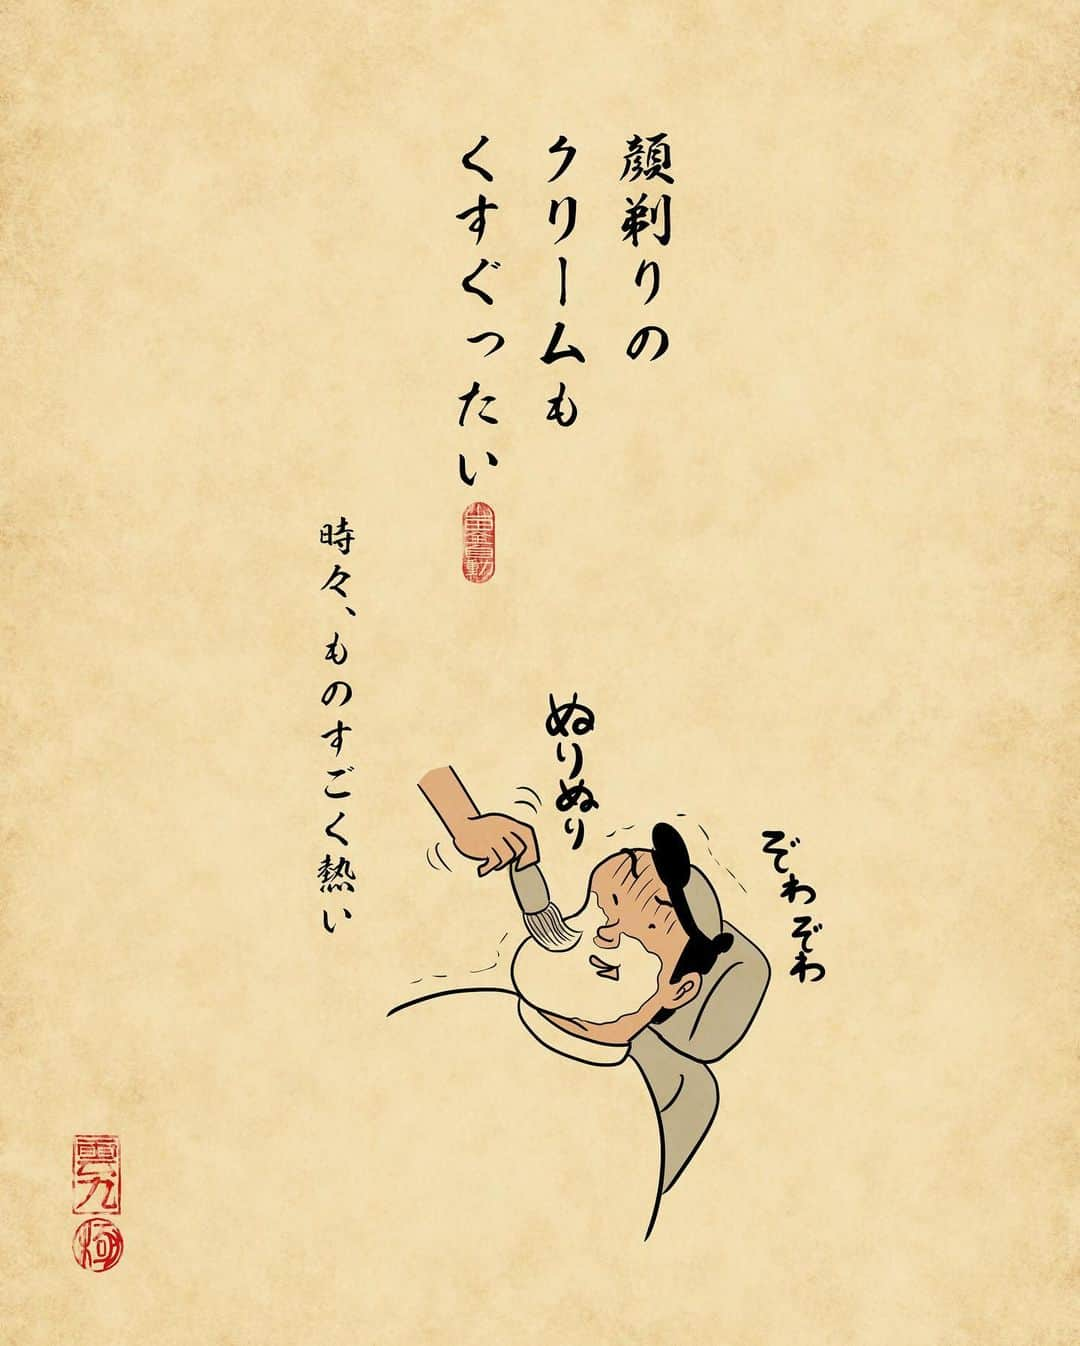 顔剃りの
クリームも
くすぐったい
時々、ものすごく熱い
ぬりぬり
ぞわぞわ